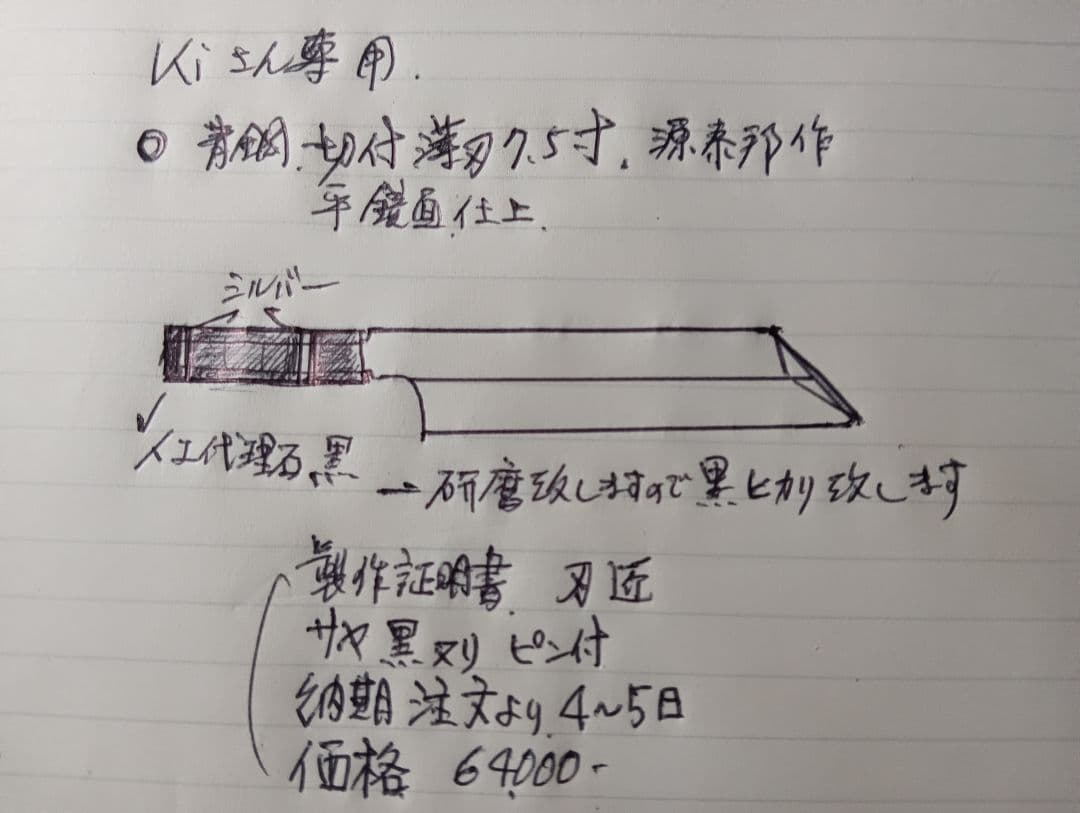 Kiさん専用.
○ 青鋼.切付薄刃7.5寸.源泰邦作
平鏡面仕上.
シルバー
✓
人工代理石.黒
→ 研磨致しますので黒ヒカリ致します
製作証明書. 刃匠
サヤ黒ヌリ ピン付
納期 注文より.4~5日
価格 64,000-